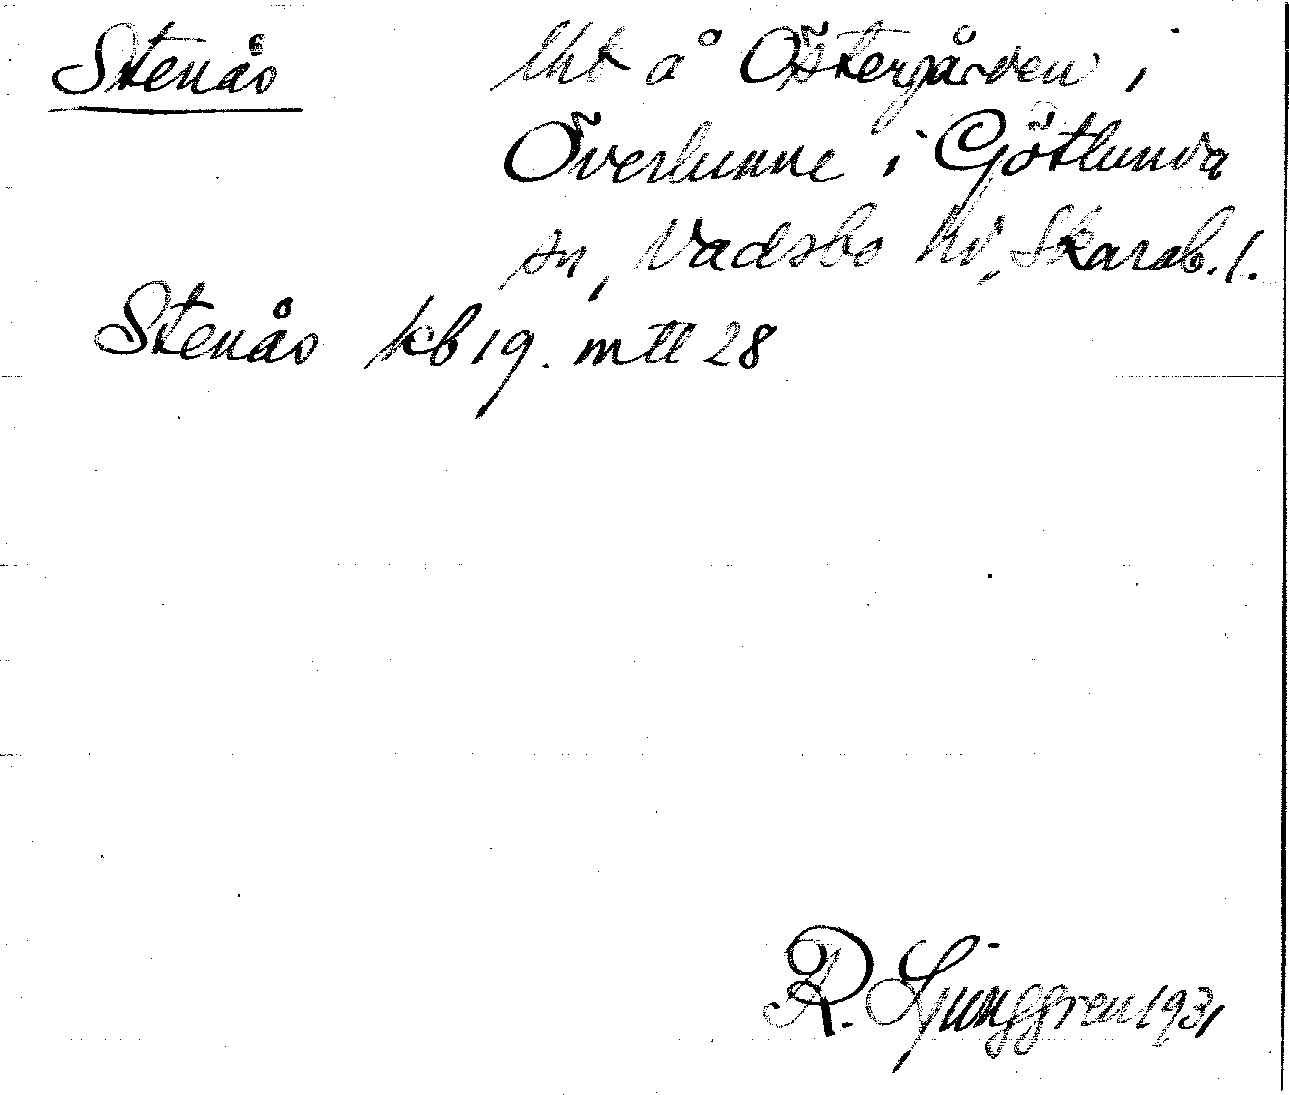 Stenås lht å Östergården i
Överlunne i Götlunda
sn, Vadsbo hd, Skarab. l.
Stenås kb 19. mtl 28
R. Ljunggren 1931